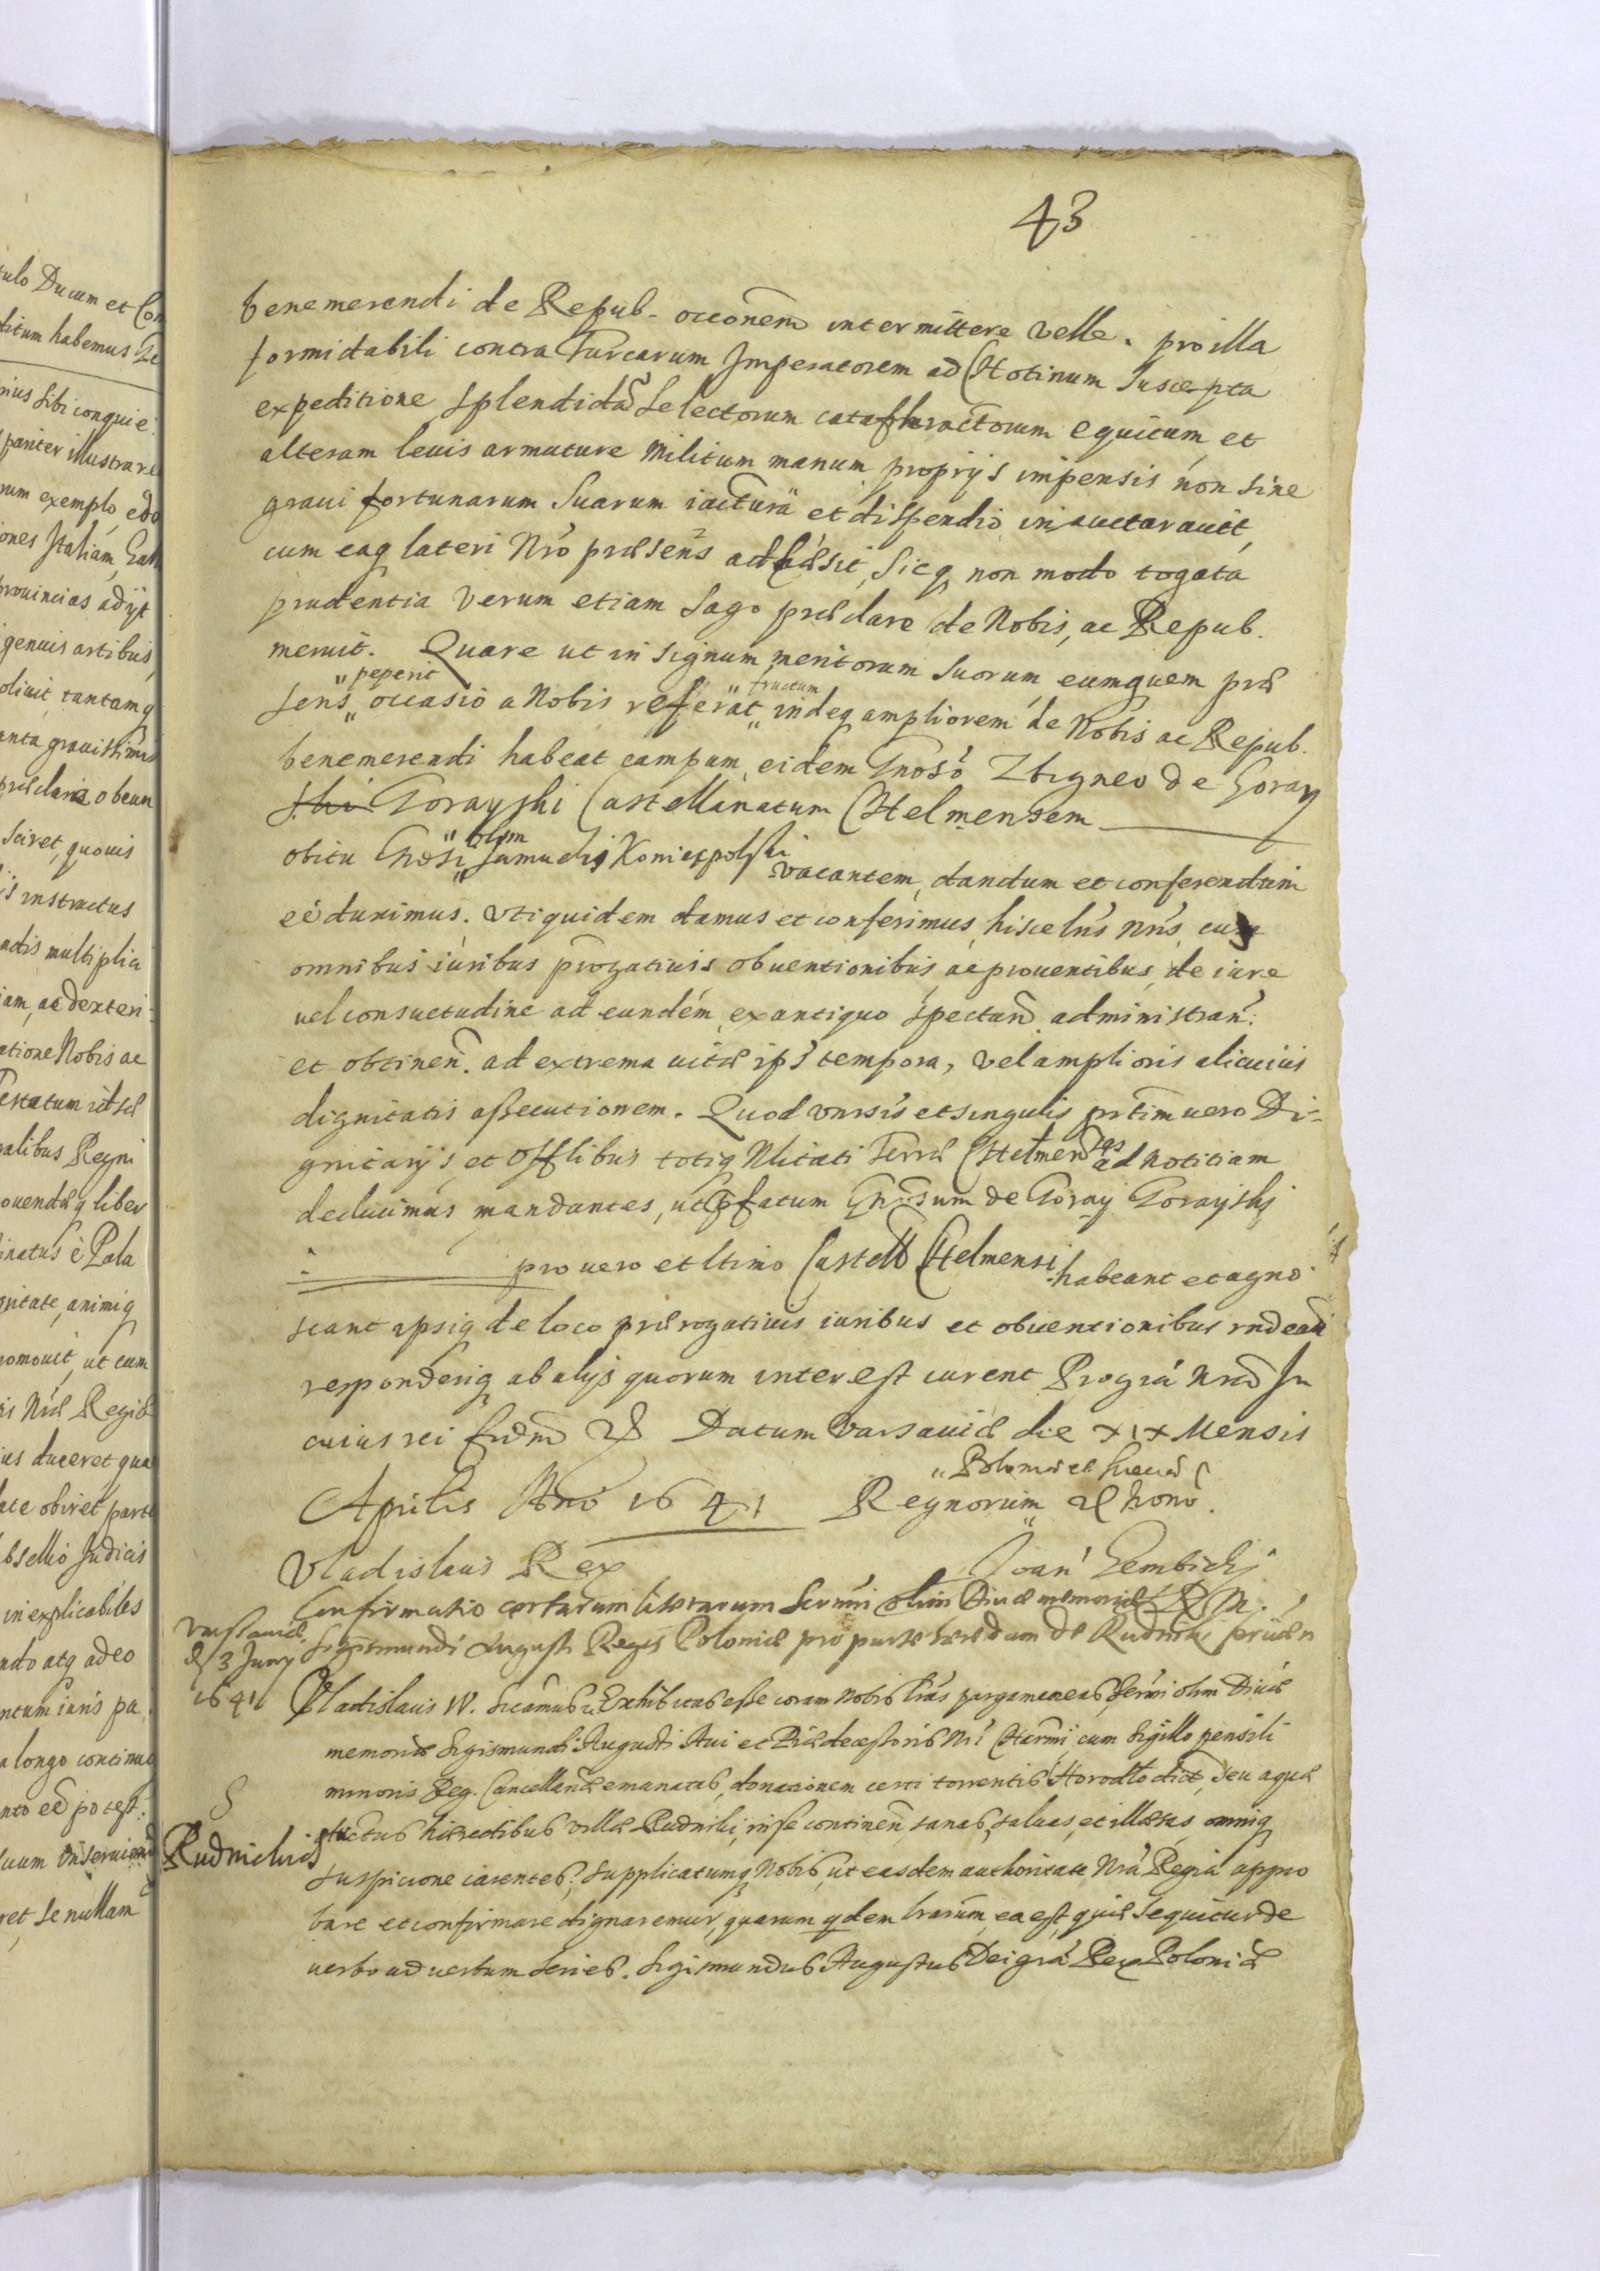 43
benemerendi de Repub. occonem intermittere velle. pro illa
formidabili contra Turcarum Imperatorem ad Chotinum suscepta
expeditione splendida selectorum cataphractorum equitum, et
alteram leuis armature militum manum proprijs impensis non sine
graui fortunarum suarum iactura et dispendio inauctarauit,
cum eaq lateri Nro præsens adhæsit, sicq non modo togata
prudentia verum etiam sago præclare de Nobis, ac Repub.
meruit. Quare ut in signum meritorum suorum, eumquem præ
peperit fructum
sens occasio a Nobis referat indeq ampliorem de Nobis ac Repub.
benemerendi habeat campum, eidem Gnoso Zbigneo de Goray
Gorayski Castellanatum Chelmensem
olim
obitu Gnosi Samuelis Koniecpolski vacantem, dandum et conferendum
eē duximus. Vti quidem damus et conferimus, hisce lris nris, cum
omnibus iuribus progatiuis obuentionibus, ac prouentibus, de iure
uel consuetudine ad eundem, ex antiquo spectan. administran.
et obtinen. ad extrema uitæ ips tempora, vel amplioris alicuius
dignitatis assecutionem. Quod vnrsis et singulis, prtim uero Di-
gnitarijs, et Offlibus totiq Nlitati Terræ Chelmensis ad notitiam
deducimus, mandantes, ut pfatum Gnosum de Goray Gorayski
pro uero et ltimo Castell Chelmensi habeant et agno
scant ipsiq de loco prærogatiuis iuribus et obuentionibus rndeant
responderiq ab alijs quorum interest curent Pro gra Nra In
cuius rei fidm &c Datum Varsauiæ die XIX Mensis
Poloniæ et Sueciæ
Aprilis Ano 1641 Regnorum &c nono.
Vladislaus Rex Ioan Gembicki
Confirmatio certarum literarum Sermi olim Diuæ memoriæ
Varsauiæ
d 3 Juny
1641
Sigismundi Augusti Regis Poloniæ pro parte hæredum de Rudniki seruien
Vladislaus IV. Sicamus &c Exhibitas esse coram Nobis lras pargameneas, Sermi olim Diuæ
memoriæ Sigismundi Augusti Aui et Prædecessoris Nri Charmi, cum sigillo pensili
minoris Reg. Cancellariæ emanatas, donationem certi torrentis Horodlo dict, seu aquæ
S
Rudnickich
ductus hæredibus villæ Rudniki, in se continen, sanas, saluas, et illæsas, omniq
suspicione carentes; supplicatumq Nobis, ut easdem authoritate Nra Regia appro
bare et confirmare dignaremur, quarum qdem lrarum ea est, quæ sequitur de
uerbo ad uerbum series. Sigismundus Augustus Dei gra Rex Poloniæ